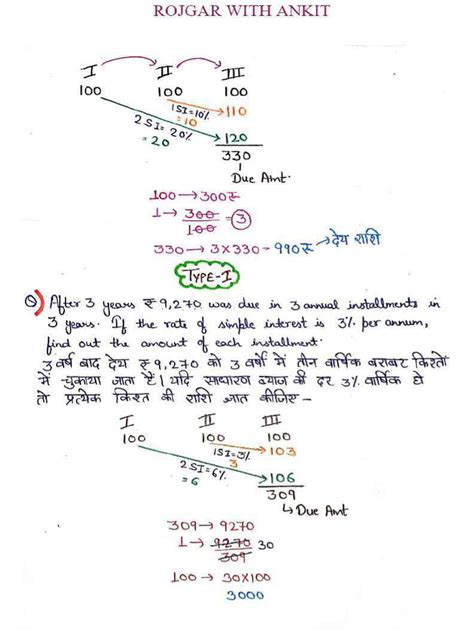 ROJGAR WITH ANKIT
I II III
100 100 100
1SI=10%
=10
110
2SI=20%
=20
120
330
Due Amt.
100→300₹
1→ 300/100 = 3
330→ 3×330= 990₹ →देय राशि
TYPE-I
Q) After 3 years ₹9,270 was due in 3 annual installments in
3 years. If the rate of simple interest is 3% per annum,
find out the amount of each installment.
3 वर्ष बाद देय ₹9,270 को 3 वर्षों में तीन वार्षिक बराबर किस्तों
में चुकाया जाता है। यदि साधारण ब्याज की दर 3% वार्षिक हो
तो प्रत्येक किस्त की राशि ज्ञात कीजिए –
I II III
100 100 100
1SI=3%
3
103
2SI=6%
=6
106
309
Due Amt
309→ 9270
1→ 9270/309 30
100→ 30×100
3000